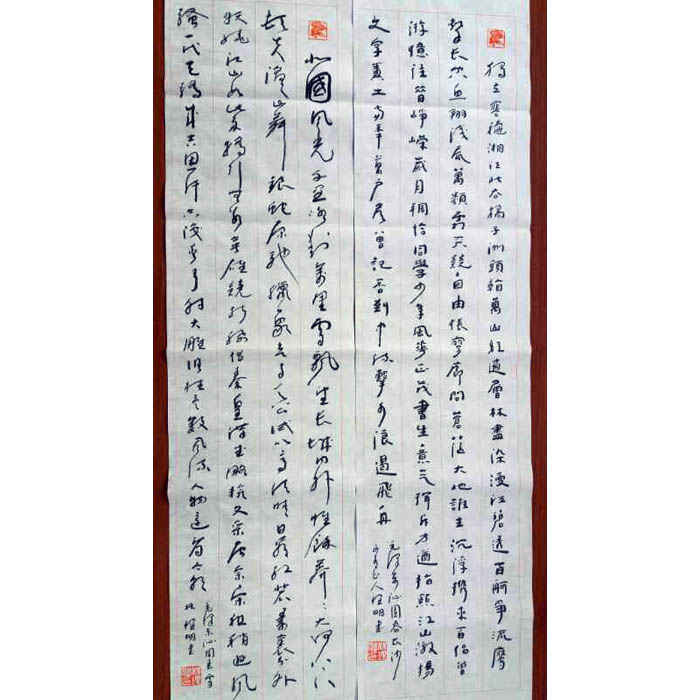 獨立寒秋湘江北去橘子洲頭看萬山红遍層林盡染漫江碧透百舸爭流鷹
擊长空魚翔浅底萬類霜天競自由悵寥廓問蒼茫大地誰主沉浮携来百侣曾
游憶往昔崢嶸歲月稠恰同學少年風华正茂書生意气揮斥方遒指點江山激揚
文字糞土當年萬户侯曾記否到中流擊水浪遏飛舟
毛澤東沁園春長沙
明書
北國風光千里冰封萬里雪飘望长城内外惟餘莽々大河上下
頓失滔々山舞銀蛇原馳蠟象欲与天公試比高须晴日看红装素裹分外
妖娆江山如此多嬌引無數英雄競折腰惜秦皇漢武略輸文采唐宗宋祖稍逊風
騷一代天驕成吉思汗只识弯弓射大雕俱往矣數風流人物還看今朝
毛澤東沁園春雪
明書